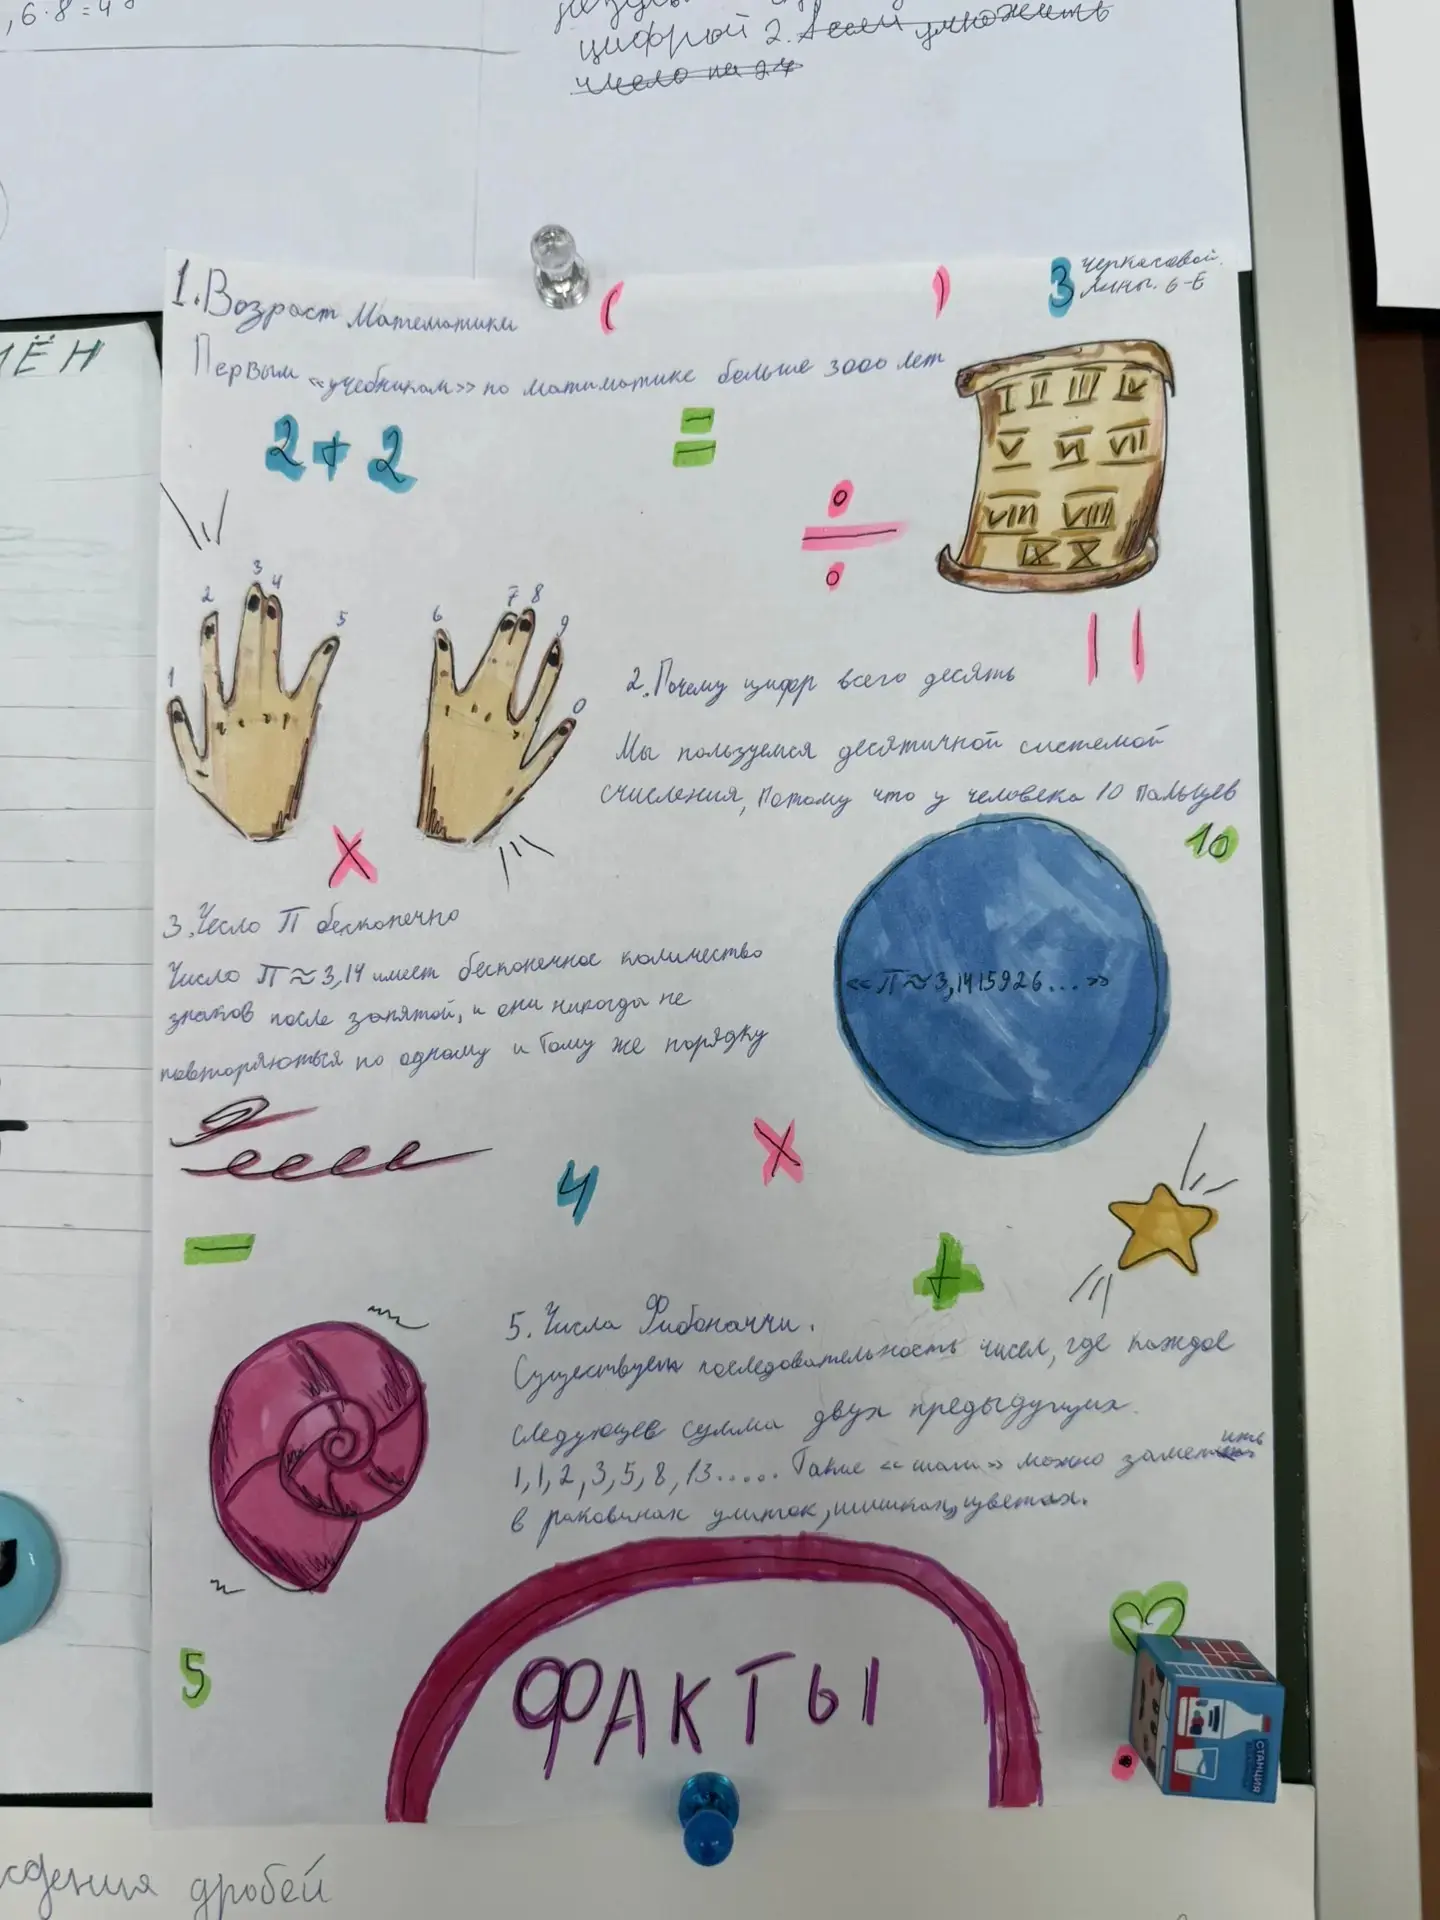 , 6·8=48
цифрой 2. А если умножить
число на 24
ЛЁН
Черкасовой
Лины. 6-Е
1. Возраст Математики
( ) 3
Первым «учебникам» по матиматике больше 3000 лет
2+2 =
÷
I II III IV
V VI VII
VIII VIIII
IX X
1 2 3 4 5 6 7 8 9 0
2. Почему цифр всего десять
Мы пользуемся десятичной системой
счисления, потому что у человека 10 пальцев
10
×
3. Чесло П бесконечно
Число П≈3,14 имеет бесконечное количество
знаков после запятой, и они никогда не
повторяються по одному и тому же порядку
«П≈3,1415926...»
4 ×
− +
5. Числа Фибоначчи.
Существует последовательность чисел, где каждое
следующее сумма двух предыдущих.
1, 1, 2, 3, 5, 8, 13..... Такие «шаги» можно заметить
в раковинах улиток, шишках, цветах.
5
ФАКТЫ
СТАНЦИЯ
ждения дробей